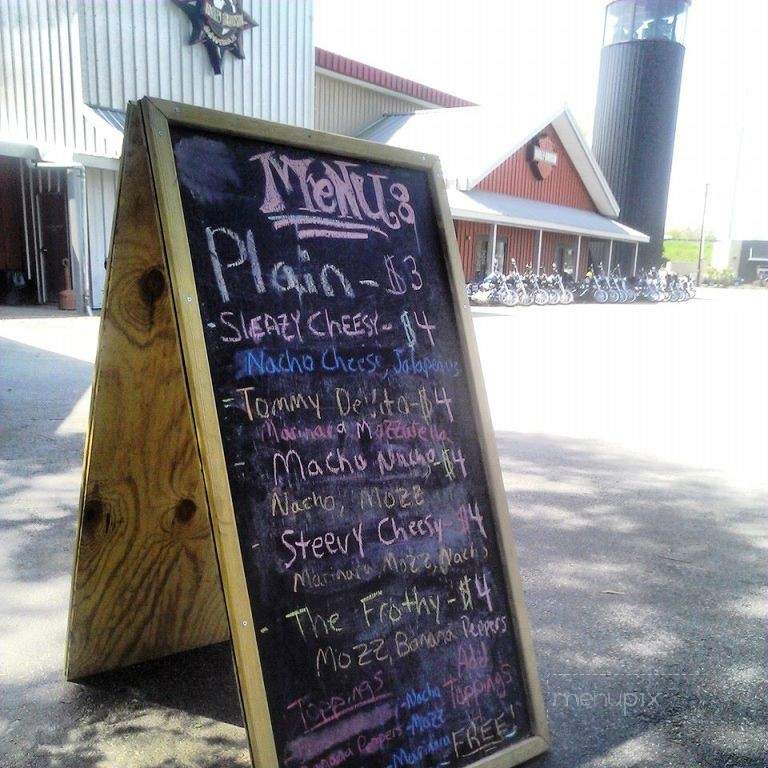 MENU:
Plain - $3
- SLEAZY CHEESY - $4
Nacho Cheese, Jalapenos
- Tommy DeVito - $4
Marinara Mozzarella
- Macho Nacho - $4
Nacho, Mozz
- Steevy Cheesy - $4
Marinara Mozz, Nacho
- The Frothy - $4
Mozz, Banana Peppers
Toppings
- Nacho
Peppers - Mozz
- Marinara
Add
Toppings
FREE!
menupix